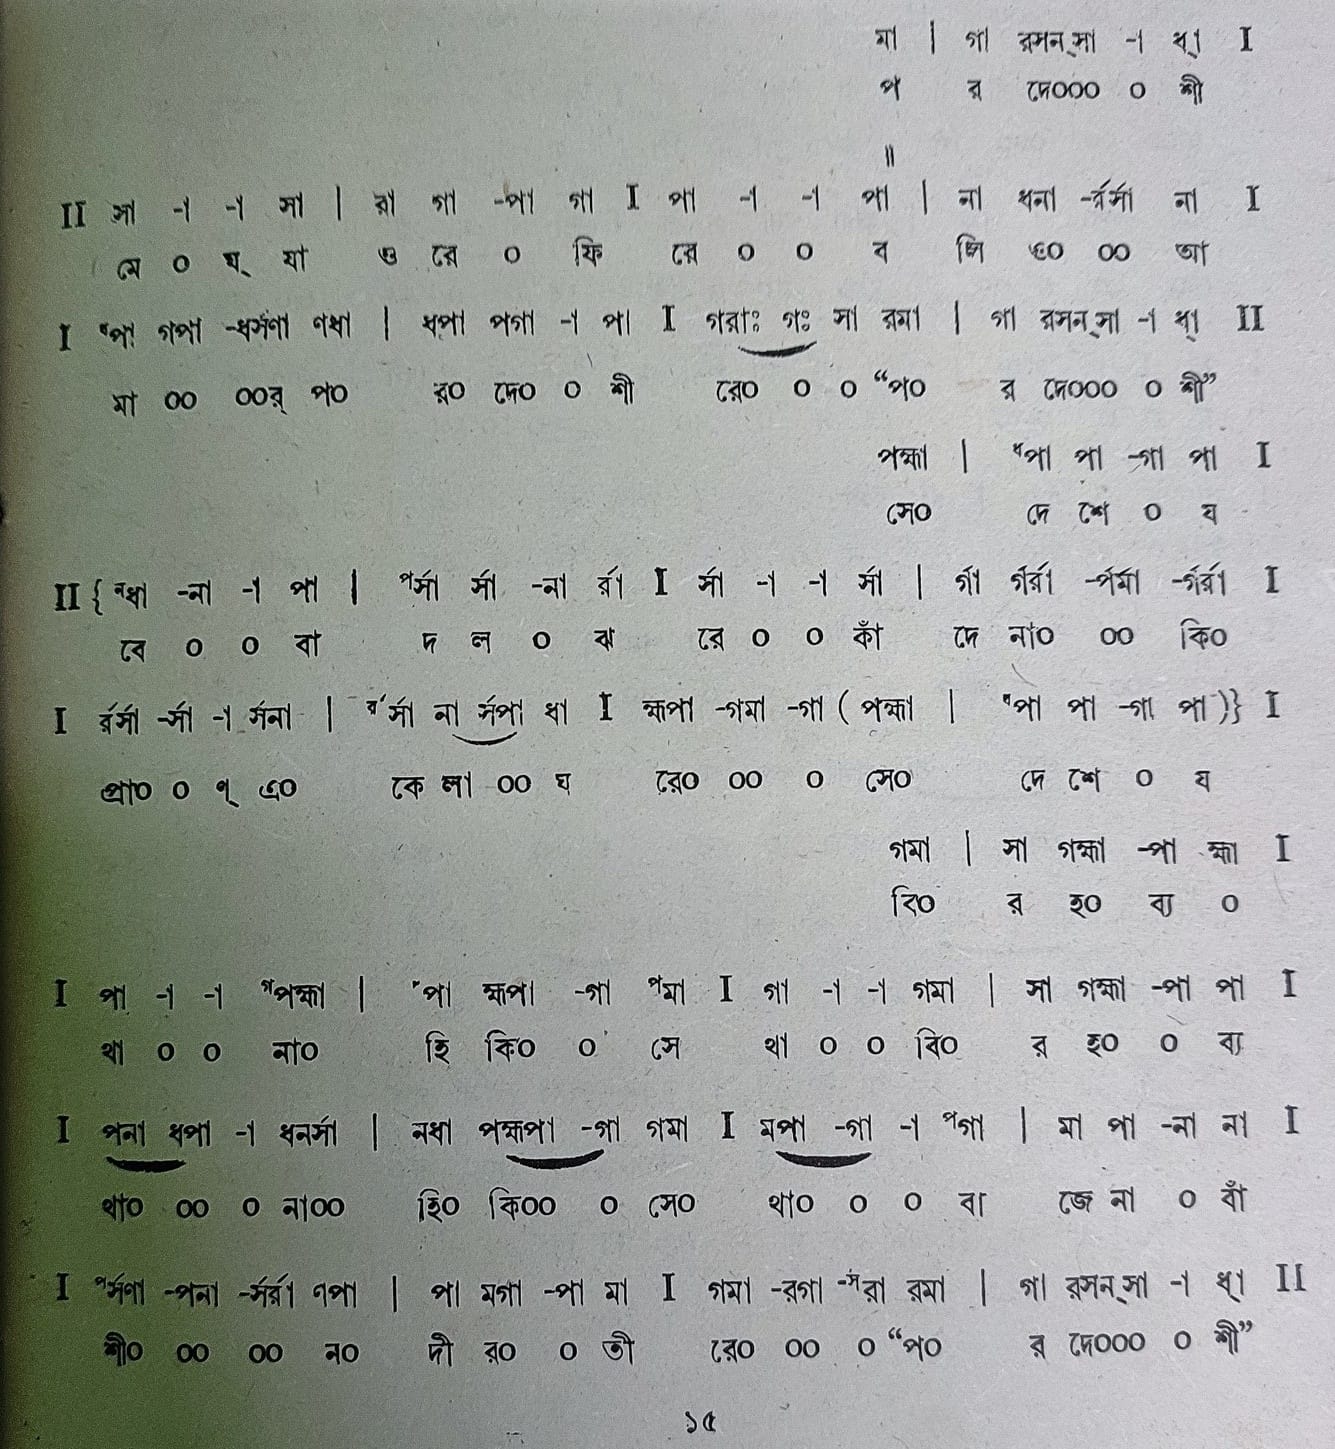 মা | গা রসন্‌সা -া ধ্‌া I
প র দে০০০ ০ শী
॥
II সা -া -া সা | রা গা -পা গা I পা -া -া পা | না ধনা -র্র্সা না I
মে ০ ঘ্ যা ও রে ০ ফি রে ০ ০ ব লি ও০ ০০ আ
I পা গপা -ধর্সণা ণধা | ধপা পগা -া পা I গরাঃ গঃ সা রমা | গা রসন্‌সা -া ধ্‌া II
মা ০০ ০০র্ প০ র০ দে০ ০ শী রে০ ০ ০ “প০ র দে০০০ ০ শী”
পহ্মা | ধপা পা -গা পা I
সে০ দে শে ০ য
II { নধা -না -া পা | পর্সা র্সা -না র্রা I র্সা -া -া র্সা | র্গা র্গর্রা -র্পর্মা -র্গর্রা I
বে ০ ০ বা দ ল ০ ঝ রে ০ ০ কাঁ দে না০ ০০ কি০
I র্রর্সা -র্সা -া র্সনা | র্সা না র্সপা ধা I হ্মপা -গমা -গা ( পহ্মা | পা পা -গা পা )} I
প্রা০ ০ ণ্ এ০ কে লা ০০ ঘ রে০ ০০ ০ সে০ দে শে ০ য
গমা | সা গহ্মা -পা হ্মা I
বি০ র হ০ ব্য ০
I পা -া -া পহ্মা | পা হ্মপা -গা পমা I গা -া -া গমা | সা গহ্মা -পা পা I
থা ০ ০ না০ হি কি০ ০ সে থা ০ ০ বি০ র হ০ ০ ব্য
I পনা ধপা -া ধনর্সা | নধা পহ্মপা -গা গমা I মপা -গা -া পগা | মা পা -না না I
থা০ ০০ ০ না০০ হি০ কি০০ ০ সে০ থা০ ০ ০ বা জে না ০ বাঁ
I র্সণা -পনা -র্সর্রা ণপা | পা মগা -পা মা I গমা -রগা -সরা রমা | গা রসন্‌সা -া ধ্‌া II
শী০ ০০ ০০ ন০ দী র০ ০ তী রে০ ০০ ০ “প০ র দে০০০ ০ শী”
১৫